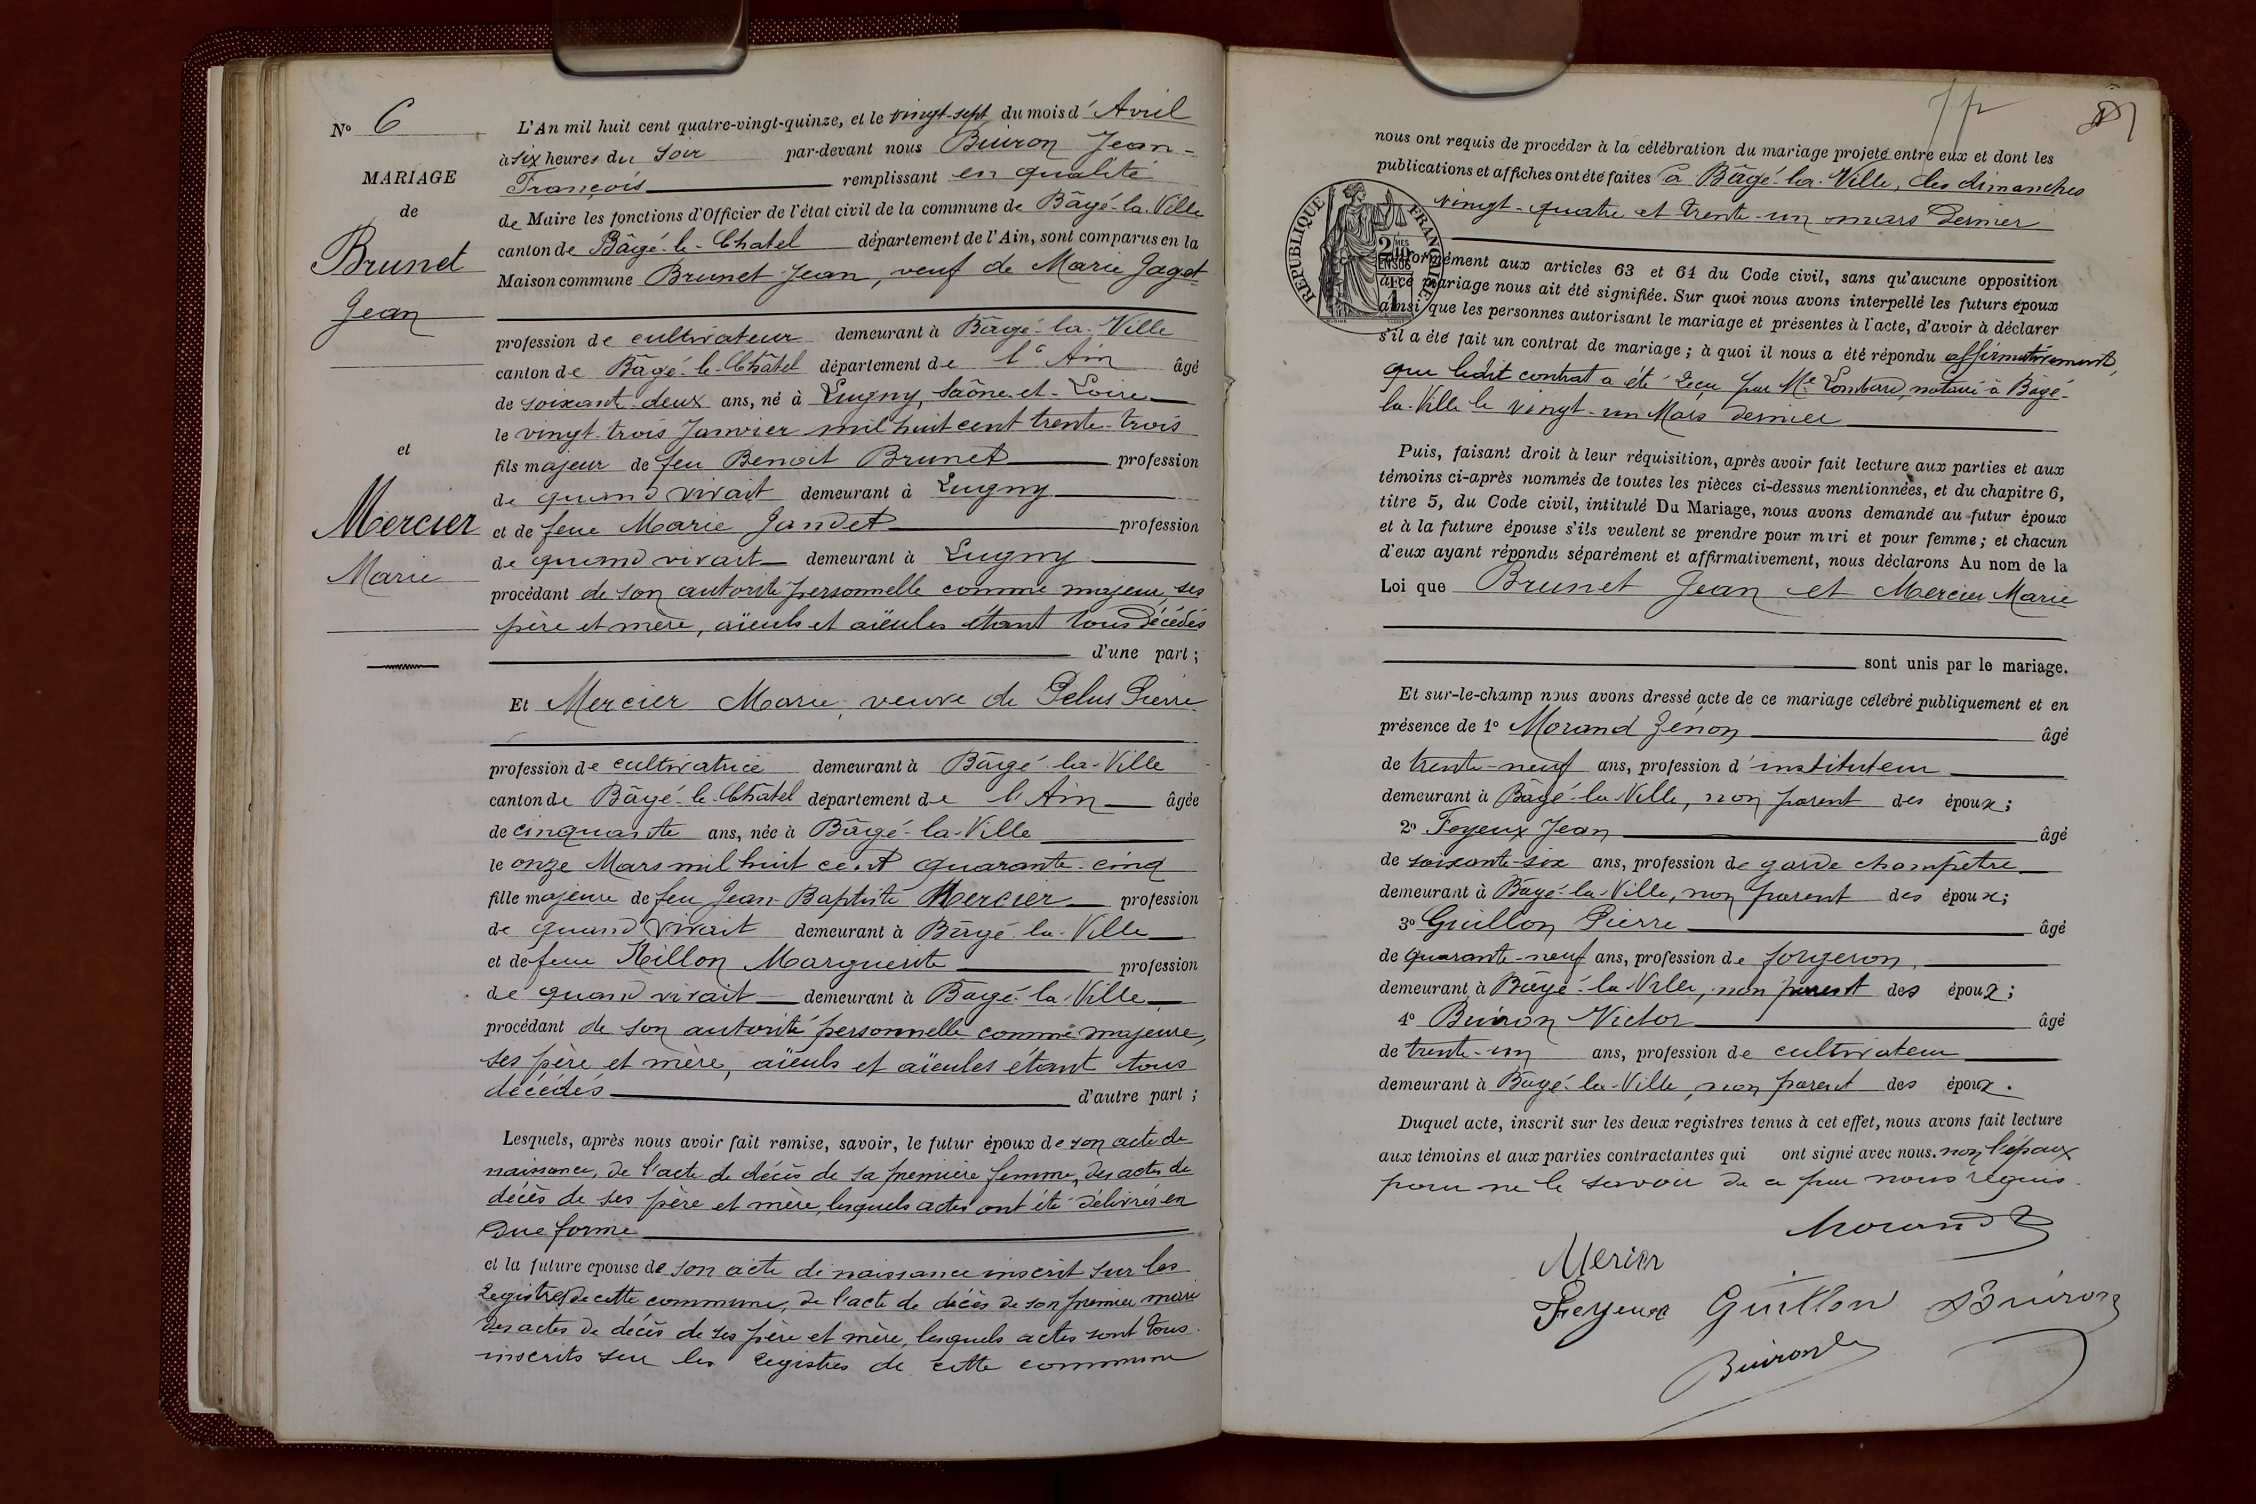 N° 6
MARIAGE
de
Brunet
Jean
et
Mercier
Marie
L'An mil huit cent quatre-vingt-quinze, et le vingt-sept du mois d'Avril
à six heures du soir par-devant nous Buiron Jean-
François remplissant en qualité
de Maire les fonctions d'Officier de l'état civil de la commune de Bâgé-la-Ville
canton de Bâgé-le-Chatel département de l'Ain, sont comparus en la
Maison commune Brunet Jean, veuf de Marie Jaget
profession de cultivateur demeurant à Bâgé-la-Ville
canton de Bâgé-le-Châtel département de l'Ain âgé
de soixant-deux ans, né à Lugny, Saône-et-Loire
le vingt-trois Janvier mil huit cent trente-trois
fils majeur de feu Benoit Brunet profession
de quand vivait demeurant à Lugny
et de feue Marie Jandet profession
de quand vivait demeurant à Lugny
procédant de son autorité personnelle comme majeur, ses
père et mère, aïeuls et aïeules étant tous décédés
d'une part;
Et Mercier Marie, veuve de Pelus Pierre
profession de cultivatrice demeurant à Bâgé-la-Ville
canton de Bâgé-le-Châtel département de l'Ain âgée
de cinquante ans, née à Bâgé-la-Ville
le onze Mars mil huit cent quarante-cinq
fille majeure de feu Jean-Baptiste Mercier profession
de quand vivait demeurant à Bâgé-la-Ville
et de feue Millon Marguerite profession
de quand vivait demeurant à Bâgé-la-Ville
procédant de son autorité personnelle comme majeure,
ses père et mère, aïeuls et aïeules étant tous
décédés d'autre part;
Lesquels, après nous avoir fait remise, savoir, le futur époux de son acte de
naissance, de l'acte de décès de sa première femme, des actes de
décès de ses père et mère, lesquels actes ont été délivrés en
due forme
et la future épouse de son acte de naissance inscrit sur les
registres de cette commune, de l'acte de décès de son premier mari
des actes de décès de ses père et mère, lesquels actes sont tous
inscrits sur les registres de cette commune
nous ont requis de procéder à la célébration du mariage projeté entre eux et dont les
publications et affiches ont été faites à Bâgé-la-Ville, les dimanches
vingt-quatre et trente-un mars dernier
RÉPUBLIQUE FRANÇAISE
conformément aux articles 63 et 64 du Code civil, sans qu'aucune opposition
à ce mariage nous ait été signifiée. Sur quoi nous avons interpellé les futurs époux
ainsi que les personnes autorisant le mariage et présentes à l'acte, d'avoir à déclarer
s'il a été fait un contrat de mariage; à quoi il nous a été répondu affirmativement,
que ledit contrat a été reçu par Me Lombard, notaire à Bâgé-
la-Ville le vingt-un Mars dernier
Puis, faisant droit à leur réquisition, après avoir fait lecture aux parties et aux
témoins ci-après nommés de toutes les pièces ci-dessus mentionnées, et du chapitre 6,
titre 5, du Code civil, intitulé Du Mariage, nous avons demandé au futur époux
et à la future épouse s'ils veulent se prendre pour mari et pour femme; et chacun
d'eux ayant répondu séparément et affirmativement, nous déclarons Au nom de la
Loi que Brunet Jean et Mercier Marie
sont unis par le mariage.
Et sur-le-champ nous avons dressé acte de ce mariage célébré publiquement et en
présence de 1° Morand Zénon âgé
de trente-neuf ans, profession d'instituteur
demeurant à Bâgé-la-Ville, non parent des époux;
2° Feyeux Jean âgé
de soixante-six ans, profession de garde champêtre
demeurant à Bâgé-la-Ville, non parent des époux;
3° Guillon Pierre âgé
de quarante-neuf ans, profession de forgeron,
demeurant à Bâgé-la-Ville, non parent des époux;
4° Buiron Victor âgé
de trente-un ans, profession de cultivateur
demeurant à Bâgé-la-Ville, non parent des époux.
Duquel acte, inscrit sur les deux registres tenus à cet effet, nous avons fait lecture
aux témoins et aux parties contractantes qui ont signé avec nous. non l'époux
pour ne le savoir de ce par nous requis.
Morand Z
Mercier
Feyeux Guillon Buiron
Buiron